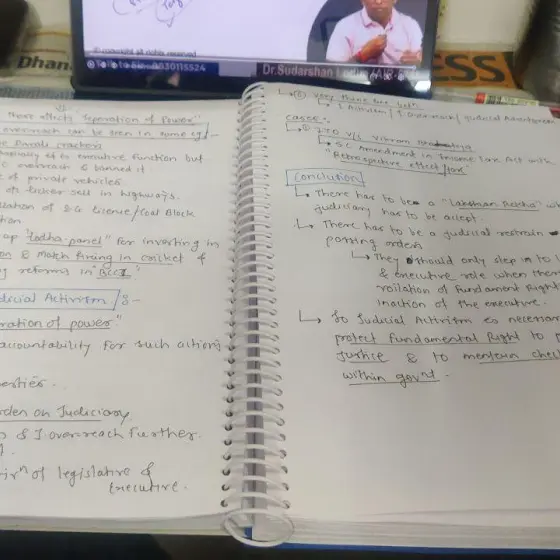 © copyright all rights reserved
Dhan
Talk to Sir - 9830115524
Dr.Sudarshan Lodha
ESS
There affects Separation of Power"
overreach can be seen in some eg:-
Diwali crackers
executive function but
C overreach & banned it
of private vehicles
or liquor sell in highways.
lation of 2G license/Coal Block
tion.
up "Lodha panel" for investing in
on & Match fixing in cricket &
reforms in "BCCI"
dicial Activism/3-
ration of power"
accountability for such actions
erties..
rden on Judiciary
& J overreach further.
of legislative &
Executive.
very there are
J Activism / J overreach / Judicial Adventurism
Cases:-
① 2G v/s
S.C Amendment in Income tax Act
"Retrospective effect/tax"
Conclusion
There has to be a "Lakshman Rekha"
judiciary has to be accept.
There has to be a judicial restrain
passing orders
They should only step in to
& executive role when there
voilation of Fundament Right
inaction of the executive.
So Judicial Activism is necessar
protect Fundamental Right to
Justice & to mentain chec
within govnt -